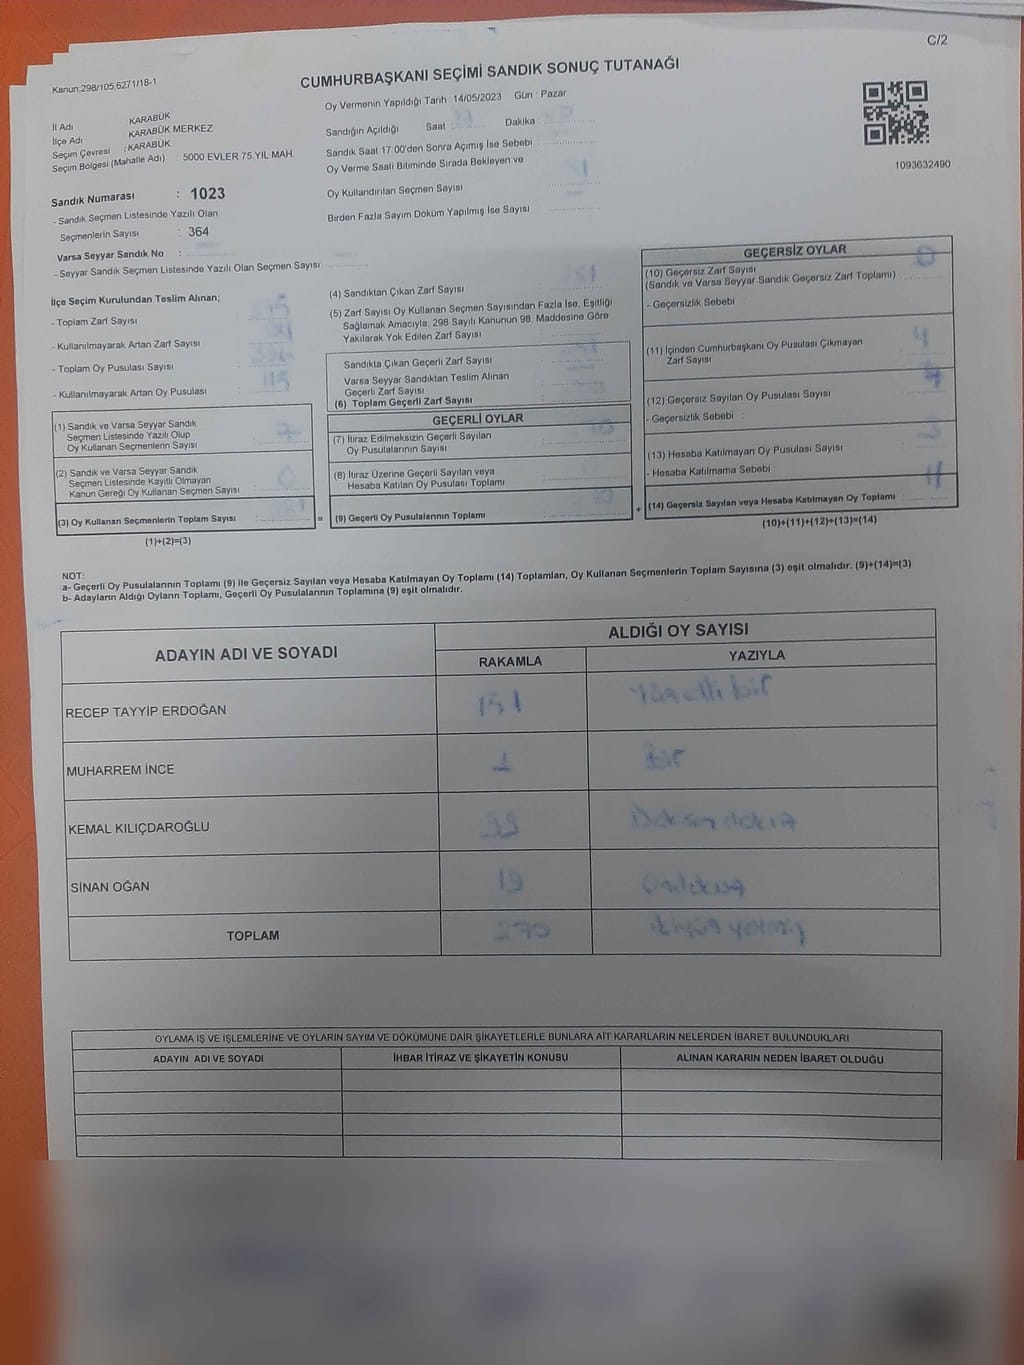 C/2
Kanun:298/105,6271/18-1
CUMHURBAŞKANI SEÇİMİ SANDIK SONUÇ TUTANAĞI
Oy Vermenin Yapıldığı Tarih 14/05/2023 Gün : Pazar
İl Adı KARABÜK
İlçe Adı KARABÜK MERKEZ
Seçim Çevresi : KARABÜK
Seçim Bölgesi (Mahalle Adı) : 5000 EVLER 75.YIL MAH.
Sandığın Açıldığı Saat : Dakika :
Sandık Saat 17:00'den Sonra Açımış İse Sebebi :
Oy Verme Saati Bitiminde Sırada Bekleyen ve
Oy Kullandırılan Seçmen Sayısı :
Birden Fazla Sayım Döküm Yapılmış İse Sayısı :
1093632490
Sandık Numarası : 1023
- Sandık Seçmen Listesinde Yazılı Olan
Seçmenlerin Sayısı : 364
Varsa Seyyar Sandık No :
- Seyyar Sandık Seçmen Listesinde Yazılı Olan Seçmen Sayısı :
İlçe Seçim Kurulundan Teslim Alınan;
- Toplam Zarf Sayısı :
- Kullanılmayarak Artan Zarf Sayısı :
- Toplam Oy Pusulası Sayısı :
- Kullanılmayarak Artan Oy Pusulası : 115
(1) Sandık ve Varsa Seyyar Sandık
Seçmen Listesinde Yazılı Olup
Oy Kullanan Seçmenlerin Sayısı :
(2) Sandık ve Varsa Seyyar Sandık
Seçmen Listesinde Kayıtlı Olmayan
Kanun Gereği Oy Kullanan Seçmen Sayısı : 0
(3) Oy Kullanan Seçmenlerin Toplam Sayısı :
(1)+(2)=(3)
(4) Sandıktan Çıkan Zarf Sayısı :
(5) Zarf Sayısı Oy Kullanan Seçmen Sayısından Fazla İse, Eşitliği
Sağlamak Amacıyla, 298 Sayılı Kanunun 98. Maddesine Göre
Yakılarak Yok Edilen Zarf Sayısı :
Sandıkta Çıkan Geçerli Zarf Sayısı :
Varsa Seyyar Sandıktan Teslim Alınan
Geçerli Zarf Sayısı :
(6) Toplam Geçerli Zarf Sayısı :
GEÇERLİ OYLAR
(7) İtiraz Edilmeksizin Geçerli Sayılan
Oy Pusulalarının Sayısı :
(8) İtiraz Üzerine Geçerli Sayılan veya
Hesaba Katılan Oy Pusulası Toplamı :
= (9) Geçerli Oy Pusulalarının Toplamı :
GEÇERSİZ OYLAR
(10) Geçersiz Zarf Sayısı
(Sandık ve Varsa Seyyar Sandık Geçersiz Zarf Toplamı) : 0
- Geçersizlik Sebebi :
(11) İçinden Cumhurbaşkanı Oy Pusulası Çıkmayan
Zarf Sayısı : 4
(12) Geçersiz Sayılan Oy Pusulası Sayısı : 4
- Geçersizlik Sebebi :
(13) Hesaba Katılmayan Oy Pusulası Sayısı : 3
- Hesaba Katılmama Sebebi :
+ (14) Geçersiz Sayılan veya Hesaba Katılmayan Oy Toplamı : 11
(10)+(11)+(12)+(13)=(14)
NOT:
a- Geçerli Oy Pusulalarının Toplamı (9) ile Geçersiz Sayılan veya Hesaba Katılmayan Oy Toplamı (14) Toplamları, Oy Kullanan Seçmenlerin Toplam Sayısına (3) eşit olmalıdır. (9)+(14)=(3)
b- Adayların Aldığı Oyların Toplamı, Geçerli Oy Pusulalarının Toplamına (9) eşit olmalıdır.
ADAYIN ADI VE SOYADI
ALDIĞI OY SAYISI
RAKAMLA YAZIYLA
RECEP TAYYİP ERDOĞAN 151 Yüzellibir
MUHARREM İNCE 1 Bir
KEMAL KILIÇDAROĞLU 99 Doksandokuz
SİNAN OĞAN 19 Ondokuz
TOPLAM 270 ikiyüzyetmiş
OYLAMA İŞ VE İŞLEMLERİNE VE OYLARIN SAYIM VE DÖKÜMÜNE DAİR ŞİKAYETLERLE BUNLARA AİT KARARLARIN NELERDEN İBARET BULUNDUKLARI
ADAYIN ADI VE SOYADI İHBAR İTİRAZ VE ŞİKAYETİN KONUSU ALINAN KARARIN NEDEN İBARET OLDUĞU